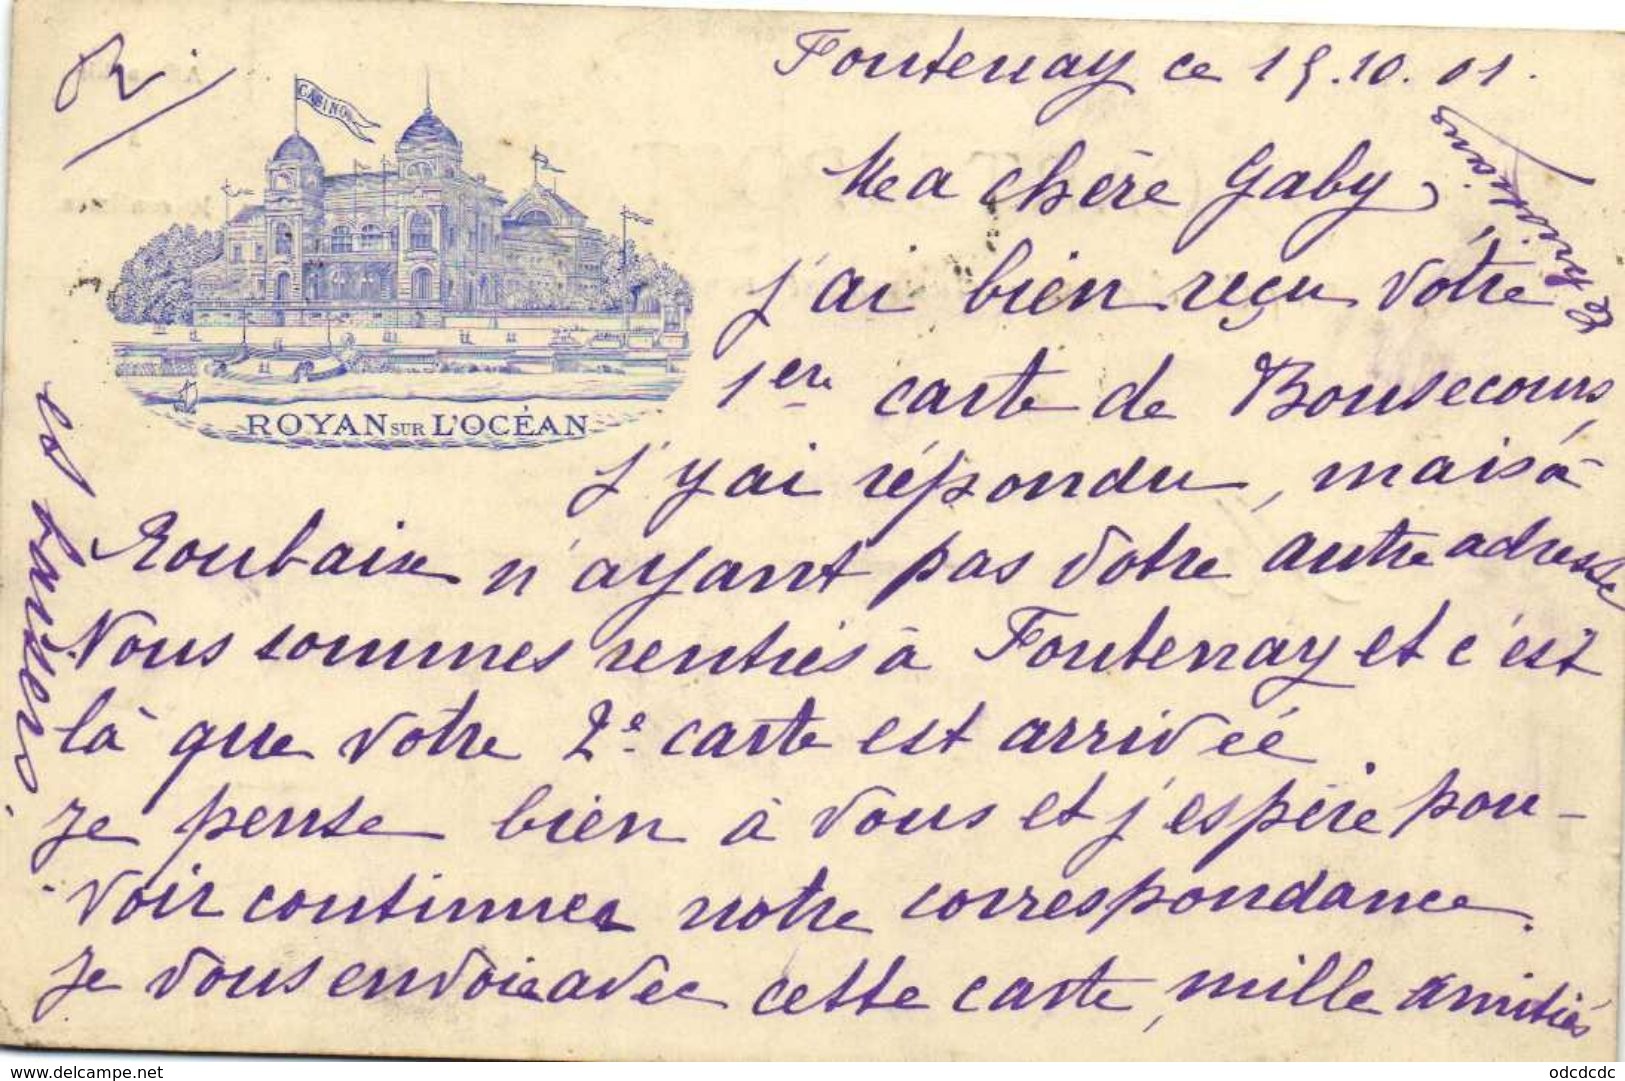 R.
Fontenay ce 15.10.01.
CASINO
Ma chère Gaby,
j'ai bien reçu votre
1ere carte de Bonsecours,
ROYAN SUR L'OCÉAN
j'y ai répondu, mais à
Roubaix n'ayant pas votre autre adresse
Nous sommes rentrés à Fontenay et c'est
là que votre 2e carte est arrivée.
Je pense bien à vous et j'espère pou-
voir continuer notre correspondance.
Je vous envoie avec cette carte, mille amitiés
et baisers.
odcdcdc